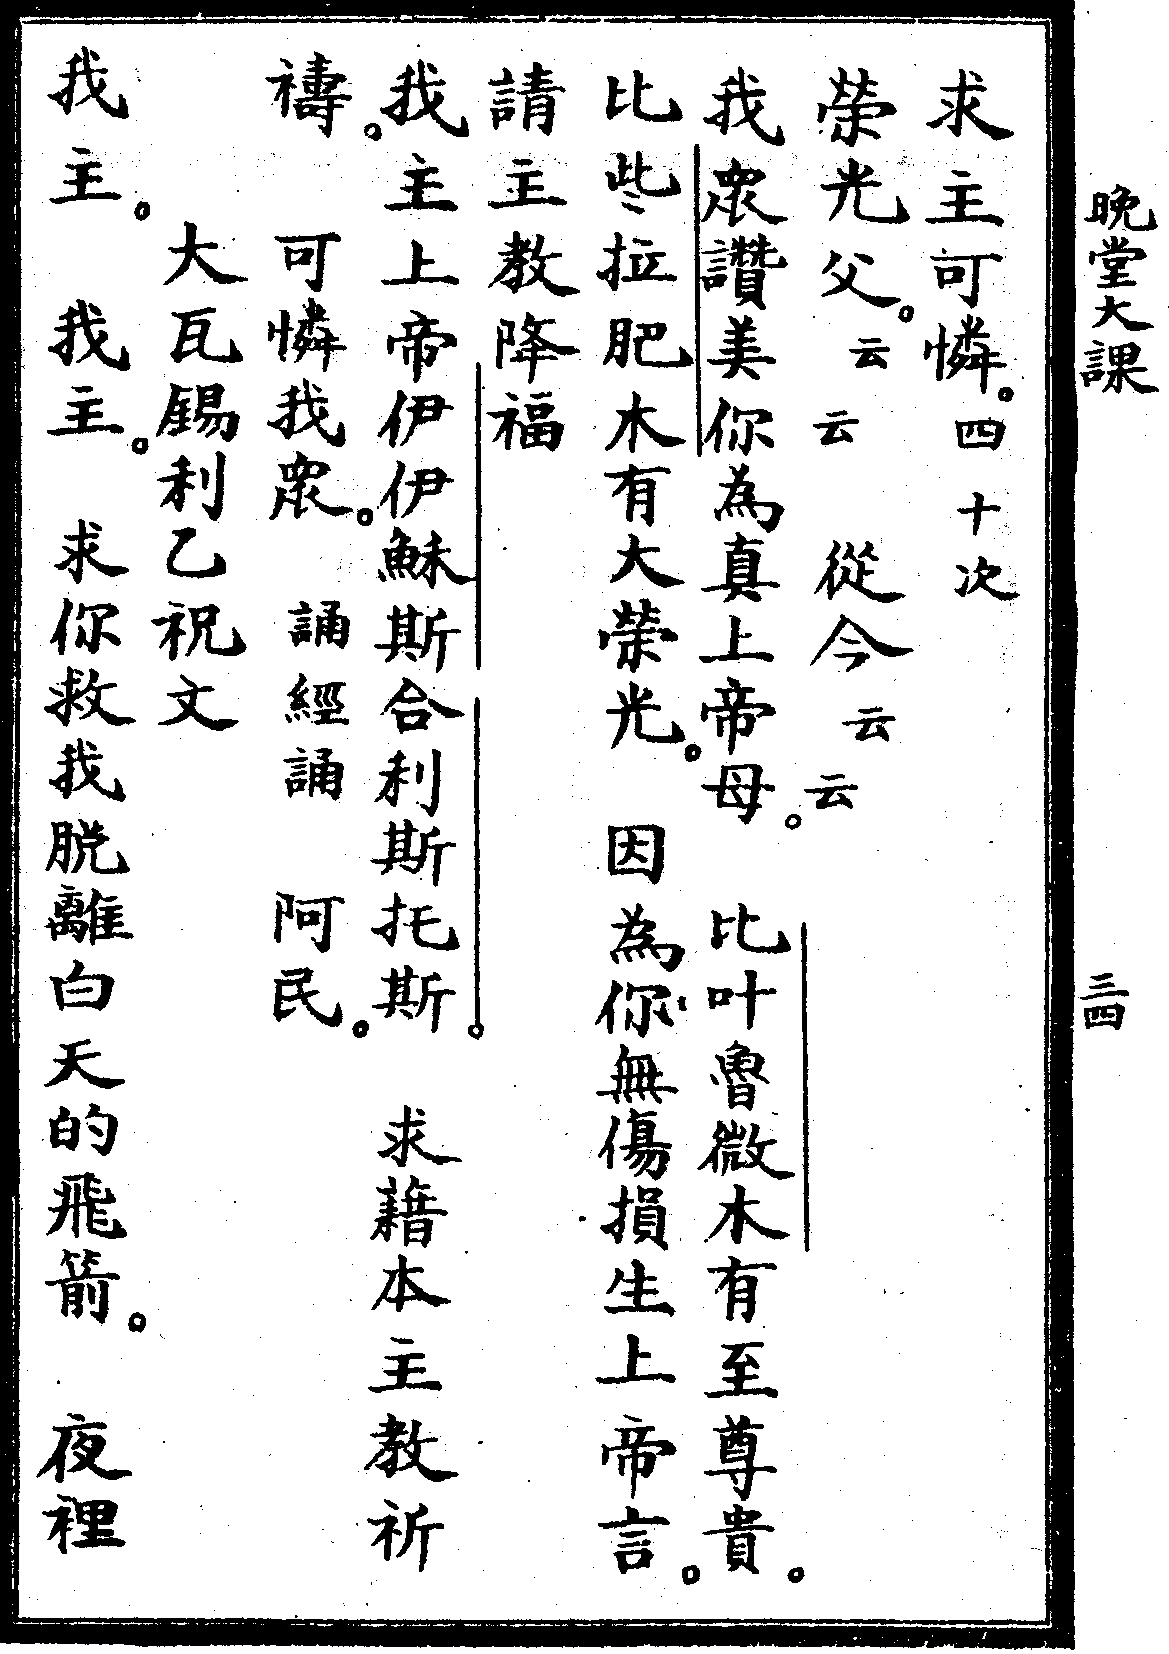 晚堂大課
三四
求主可憐。四十次
榮光父。云云 從今云云
我眾讚美你為真上帝母。 比叶魯微木有至尊貴。
比些々拉肥木有大榮光。 因為你無傷損生上帝言。
請主教降福
我主上帝伊伊穌斯合利斯托斯。 求藉本主教祈
禱。 可憐我眾。 誦經誦 阿民。
大瓦錫利乙祝文
我主。 我主。 求你救我脱離白天的飛箭。 夜裡